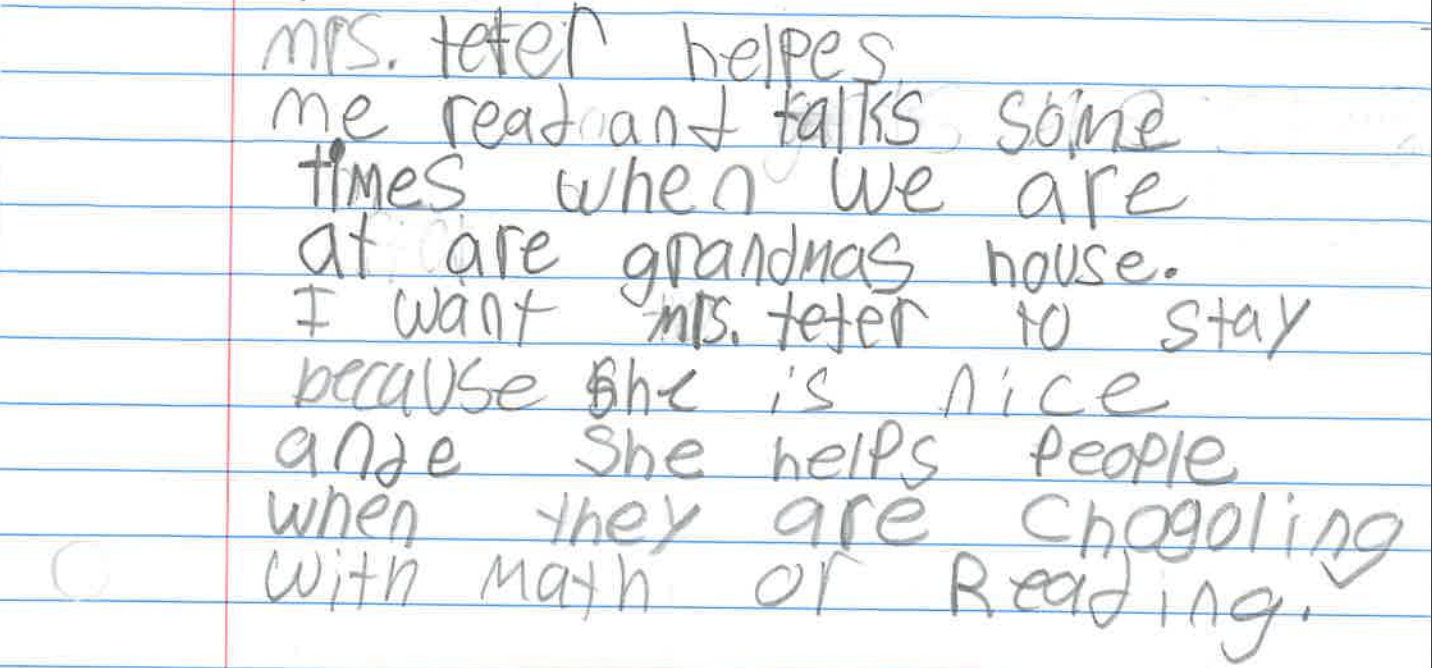 mrs. teter helpes
me read and talks some
times when we are
at are grandmas house.
I want mrs. teter to stay
because she is nice
ande She helps people
when they are chogoling
with math or Reading.